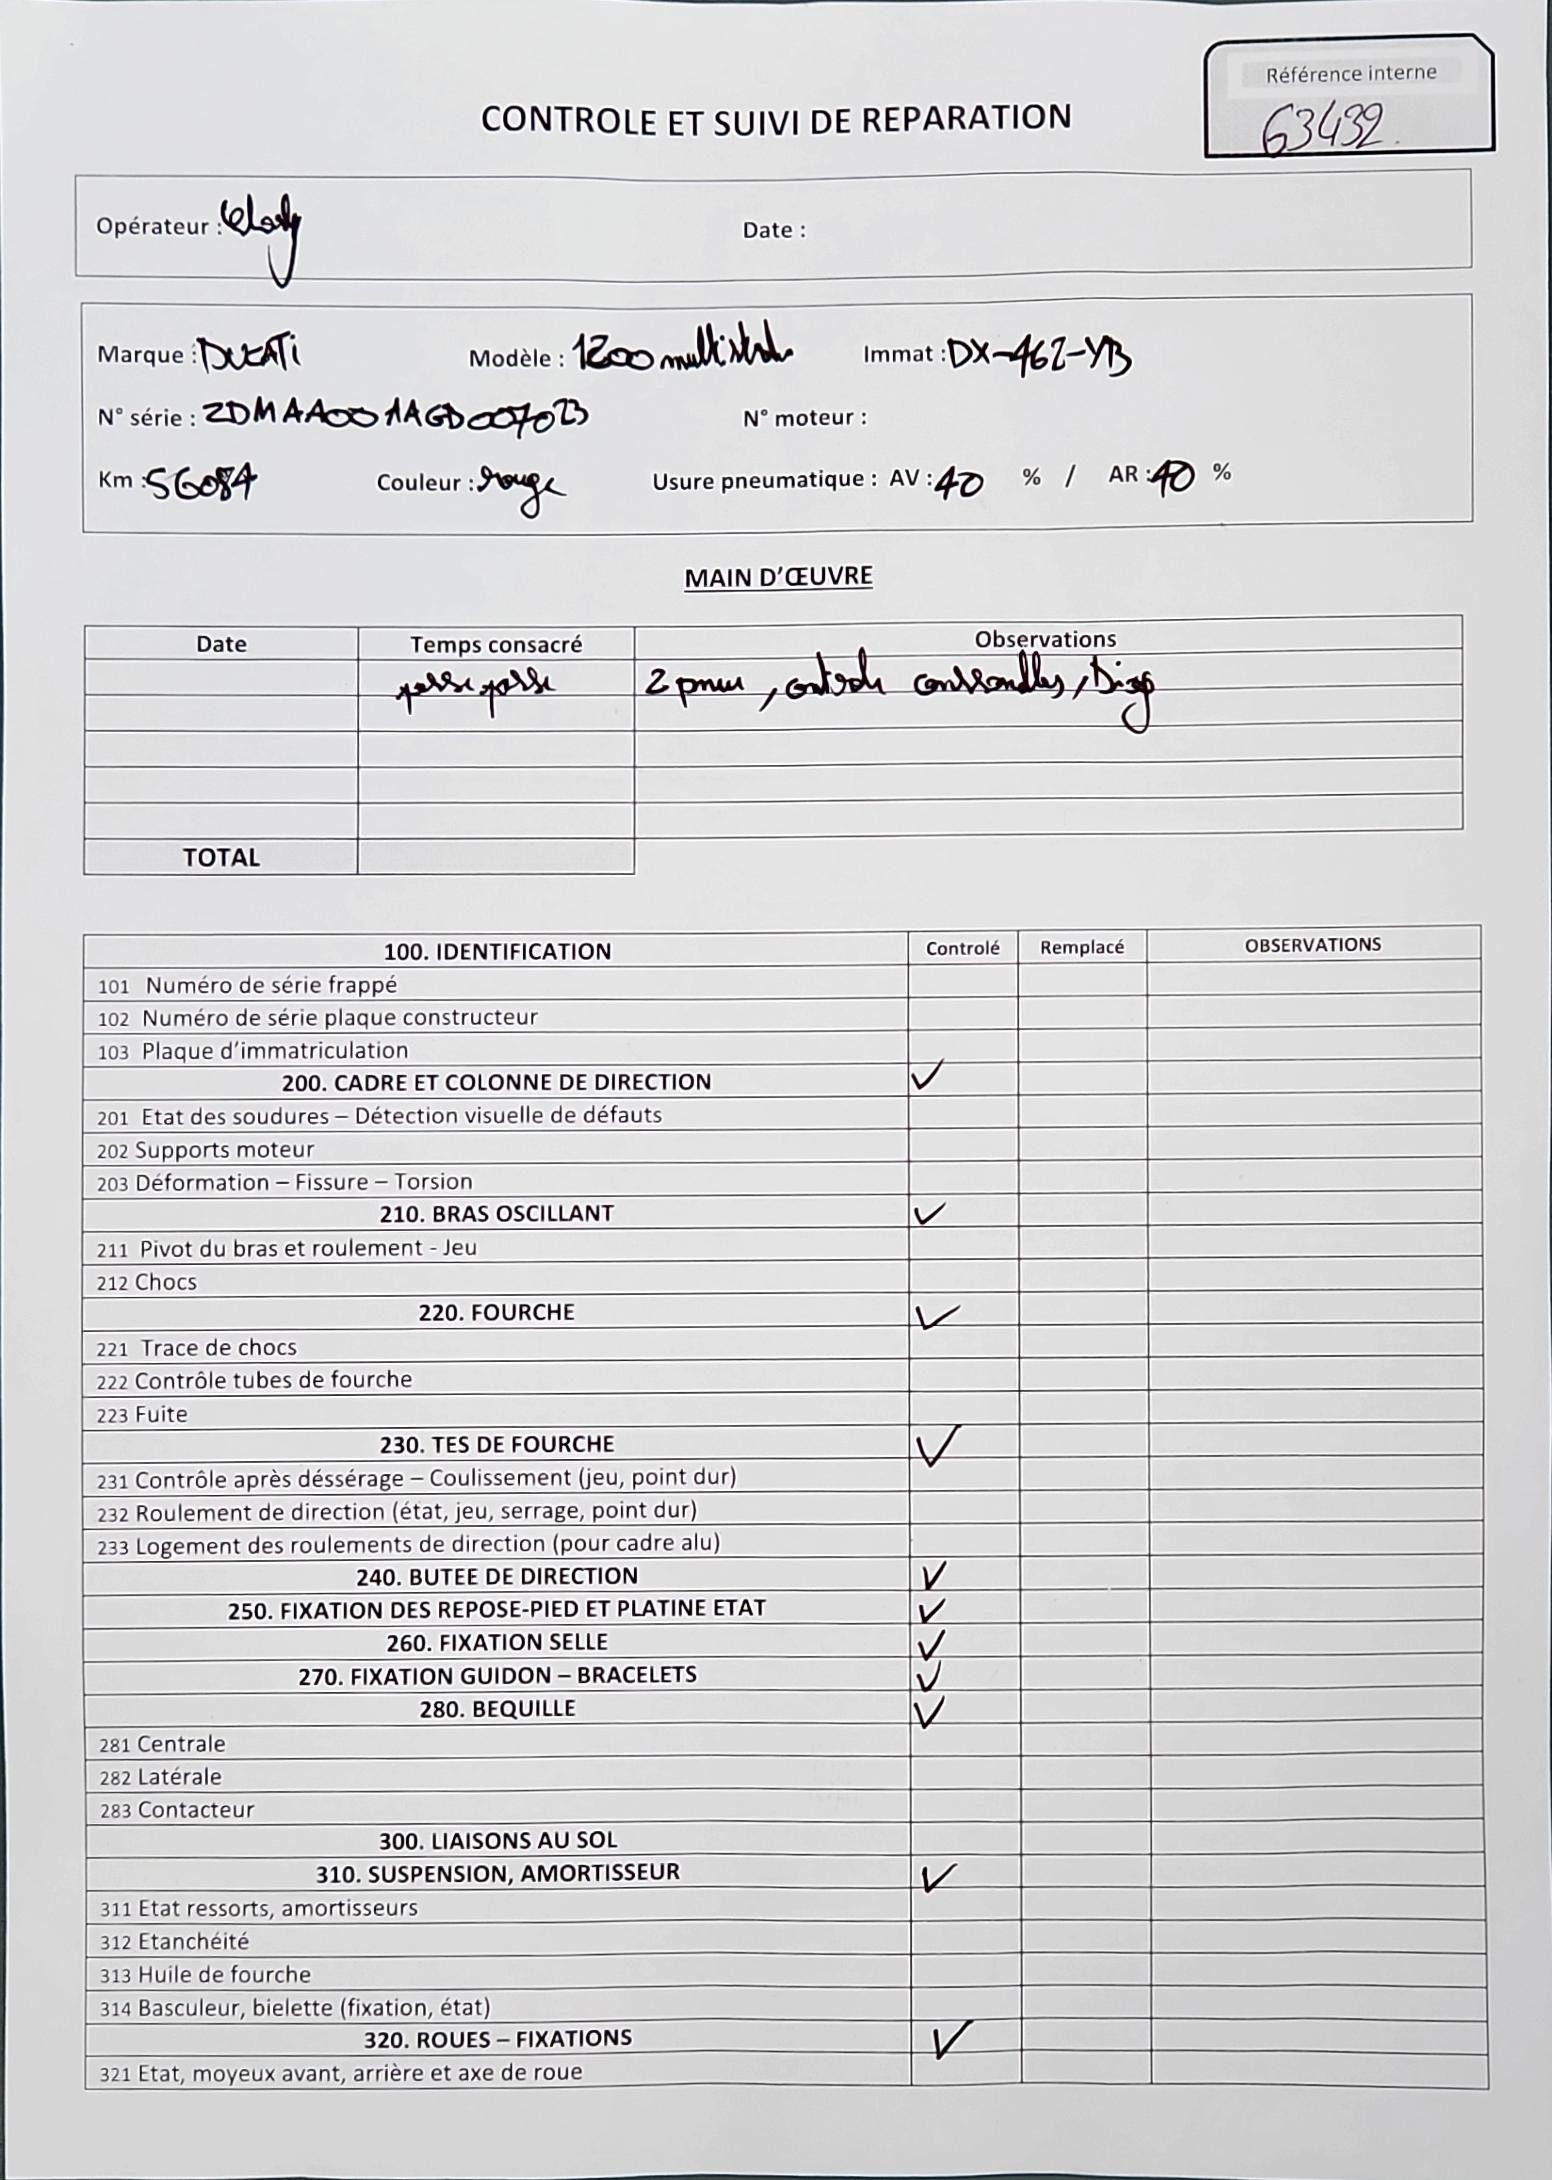 Référence interne
63432
CONTROLE ET SUIVI DE REPARATION
Opérateur : Date :
Marque : DUCATi Modèle : 1200 multistrada Immat : DX-462-YB
N° série : ZDMAA00AAGB007023 N° moteur :
Km : 56084 Couleur : rouge Usure pneumatique : AV : 40 % / AR : 40 %
MAIN D'ŒUVRE
Date Temps consacré Observations
passe passe 2 pneus, controle , Diag
TOTAL
100. IDENTIFICATION Controlé Remplacé OBSERVATIONS
101 Numéro de série frappé
102 Numéro de série plaque constructeur
103 Plaque d'immatriculation
200. CADRE ET COLONNE DE DIRECTION ✓
201 Etat des soudures – Détection visuelle de défauts
202 Supports moteur
203 Déformation – Fissure – Torsion
210. BRAS OSCILLANT ✓
211 Pivot du bras et roulement - Jeu
212 Chocs
220. FOURCHE ✓
221 Trace de chocs
222 Contrôle tubes de fourche
223 Fuite
230. TES DE FOURCHE ✓
231 Contrôle après déssérage – Coulissement (jeu, point dur)
232 Roulement de direction (état, jeu, serrage, point dur)
233 Logement des roulements de direction (pour cadre alu)
240. BUTEE DE DIRECTION ✓
250. FIXATION DES REPOSE-PIED ET PLATINE ETAT ✓
260. FIXATION SELLE ✓
270. FIXATION GUIDON – BRACELETS ✓
280. BEQUILLE ✓
281 Centrale
282 Latérale
283 Contacteur
300. LIAISONS AU SOL
310. SUSPENSION, AMORTISSEUR ✓
311 Etat ressorts, amortisseurs
312 Etanchéité
313 Huile de fourche
314 Basculeur, bielette (fixation, état)
320. ROUES – FIXATIONS ✓
321 Etat, moyeux avant, arrière et axe de roue